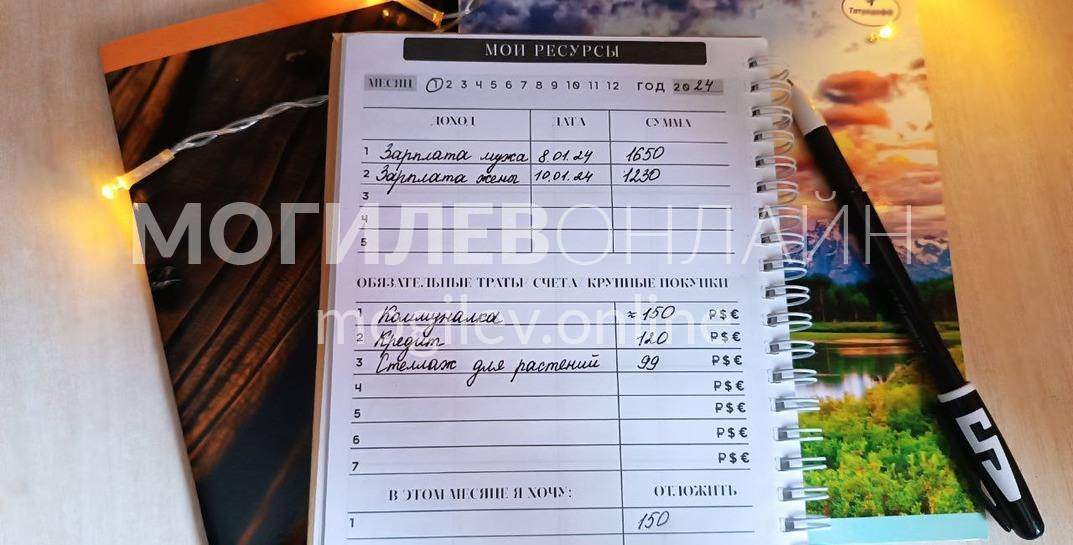 Тетрадофф
МОИ РЕСУРСЫ
МЕСЯЦ 1 2 3 4 5 6 7 8 9 10 11 12 ГОД 2024
ДОХОД ДАТА СУММА
1 Зарплата мужа 8.01.24 1650
2 Зарплата жены 10.01.24 1230
3
4
5
МОГИЛЕВОНЛАЙН
ОБЯЗАТЕЛЬНЫЕ ТРАТЫ/ СЧЕТА/ КРУПНЫЕ ПОКУПКИ
1 Коммуналка ≈ 150 ₽$€
mogilev.online
2 Кредит 120 ₽$€
3 Стеллаж для растений 99 ₽$€
4 ₽$€
5 ₽$€
6 ₽$€
7 ₽$€
В ЭТОМ МЕСЯЦЕ Я ХОЧУ: ОТЛОЖИТЬ
1 150